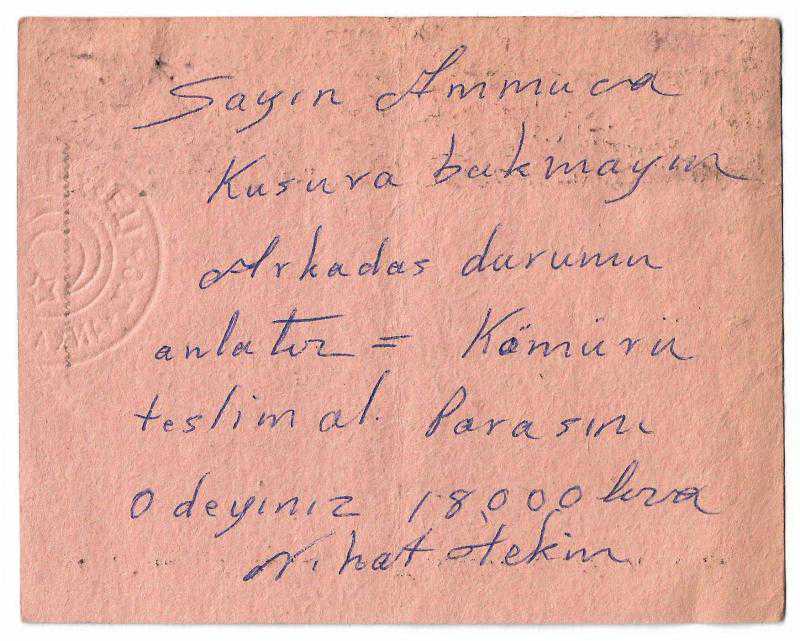 Sayın Ammuca
Kusura bakmayın
Arkadas durumu
anlatır = Kömürü
teslim al. Parasını
Odeyınız 18,000 lıra
Nihat Tekin